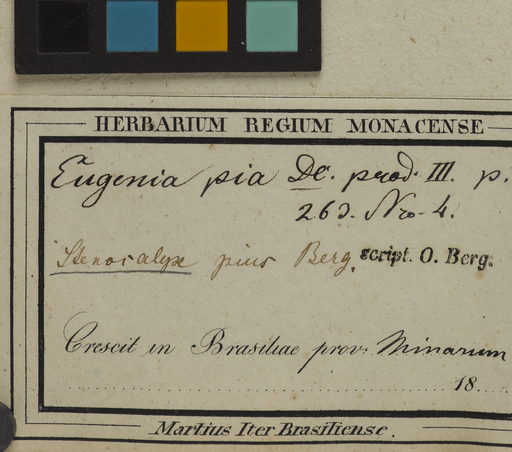 HERBARIUM REGIUM MONACENSE
Eugenia pia DC. prod. III. p.
263. No. 4.
Stenocalyx pius Berg. script. O. Berg.
Crescit in Brasiliae prov. Minarum
18
Martius Iter Brasiliense.